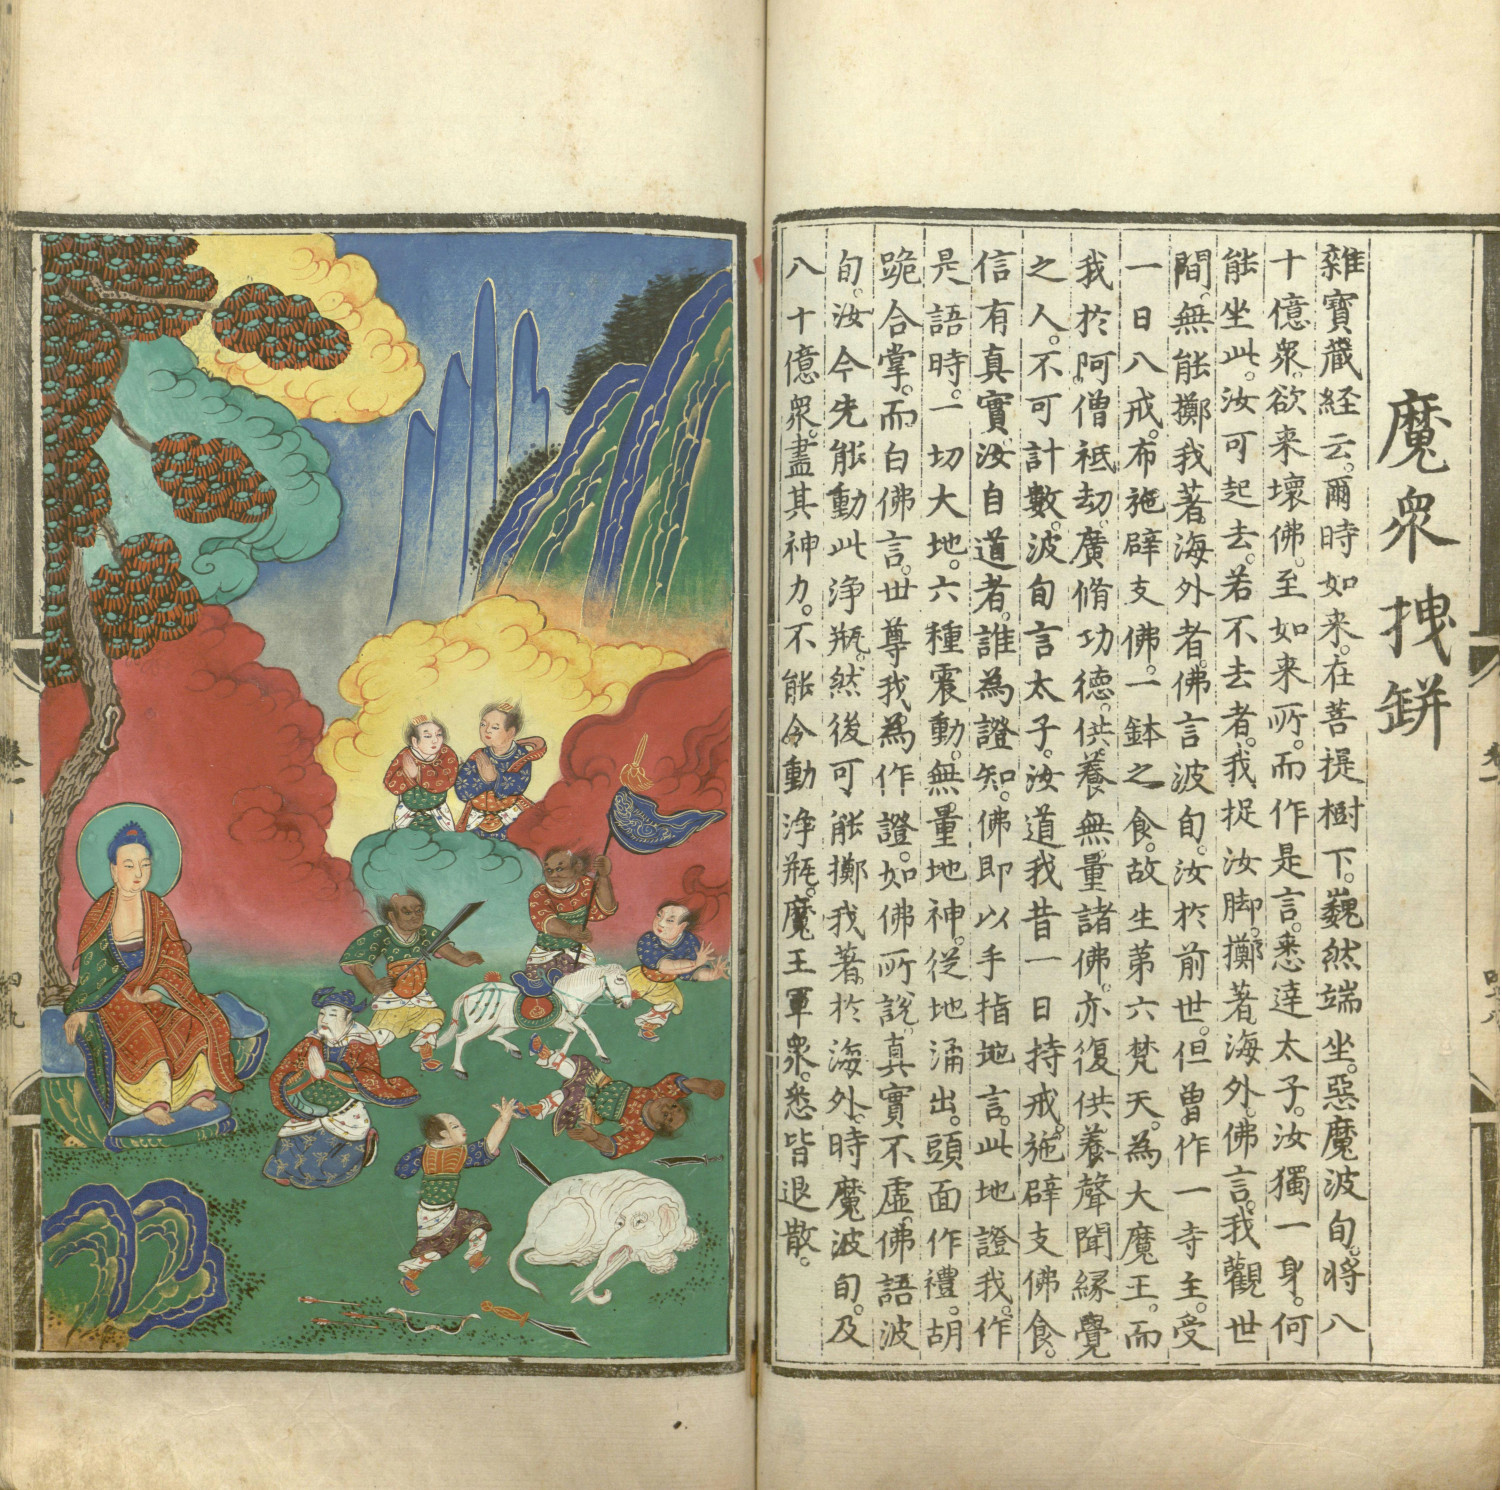 魔衆拽缾
雜寶藏経云。爾時如来。在菩提樹下。巍然端坐。惡魔波旬。将八
十億衆。欲来壞佛。至如来所。而作是言。悉達太子。汝獨一身。何
能坐此。汝可起去。若不去者。我捉汝脚。擲著海外。佛言。我觀世
間。無能擲我著海外者。佛言波旬。汝於前世。但曽作一寺主。受
一日八戒。布施辟支佛。一鉢之食。故生第六梵天。為大魔王。而
我於阿僧祇劫。廣脩功徳。供養無量諸佛。亦復供養聲聞縁覺
之人。不可計數。波旬言太子。汝道我昔一日持戒。施辟支佛食。
信有真實。汝自道者。誰為證知。佛即以手指地言。此地證我。作
是語時。一切大地。六種震動。無量地神。従地涌出。頭面作禮。胡
跪合掌。而白佛言。世尊我為作證。如佛所説。真實不虛。佛語波
旬。汝今先能動此浄瓶。然後可能擲我著於海外。時魔波旬。及
八十億衆。盡其神力。不能令動浄瓶。魔王軍衆。悉皆退散。
卷一